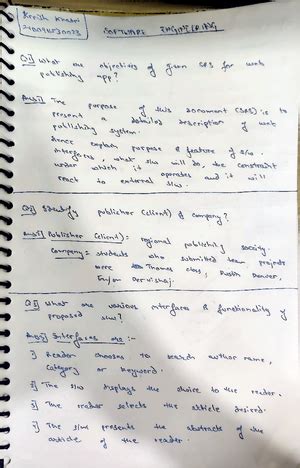 Krrish Khatri
SOFTWARE ENGINEERING
Q1) What are objectives of given SRS for web
publishing app?
Ans1) The purpose of this Document (SRS) is to
present a detailed description of web
publishing system.
hence explain purpose & feature of s/w.
interfaces, what s/w will do, the constraint
under which it operates and it will
react to external s/ws.
Q2) Identify publisher (client) & company?
Ans2) Publisher (client) = regional publishing society.
Company = students who submitted team projects
were Thomas clay, Dustin Denver,
Q3) What are various interfaces & functionality of
proposed s/w?
Ans3) Interfaces are :-
1) Reader chooses to search author name,
category or keyword.
2) The s/w displays the choice to the reader.
3) The reader selects the article desired.
4) The s/w presents the abstracts of the
article of the reader.